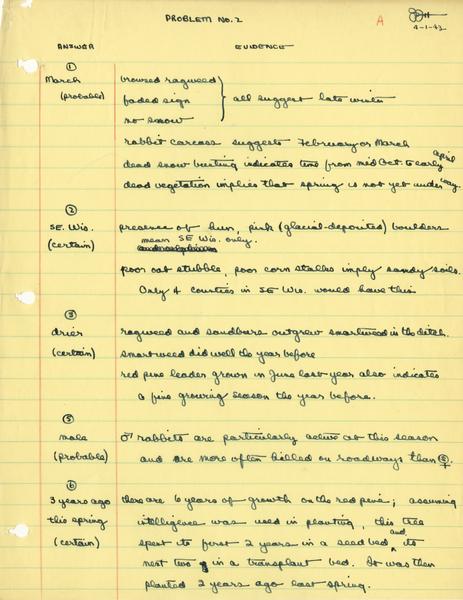 PROBLEM NO. 2
A
4-1-43
ANSWER EVIDENCE
①
March browsed ragweed
(probable) faded sign } all suggest late winter
no snow
rabbit carcass suggests February or March
dead snow bunting indicates time from mid Oct to early April
dead vegetation implies that spring is not yet under way.
②
SE. Wis. presence of hun, pink (glacial-deposited) boulders
(certain) mean SE Wis. only.
poor oat stubble, poor corn stalks imply sandy soils.
Only 4 counties in SE Wis. would have this
③
drier ragweed and sandburs outgrew smartweed in the ditch.
(certain) smartweed did well the year before
red pine leader grown in June last year also indicates
a fine growing season the year before.
⑤
male ♂ rabbits are particularly active at this season
(probable) and are more often killed on roadways than ♀
⑥
3 years ago there are 6 years of growth on the red pine; assuming
this spring intelligence was used in planting, this tree
(certain) spent its first 2 years in a seed bed and its
next two in a transplant bed. It was then
planted 2 years ago last spring.